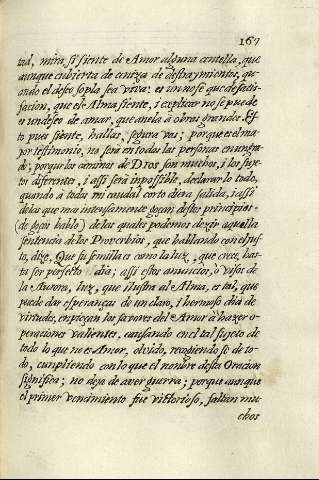 167
tad, mira si siente de Amor alguna centella, que
aunque cubierta de ceniza de destraymientos, qu-
ando el deseo sopla sea viva: es un no sè que de satis-
facion, que el Alma siente, i explicar no se puede
en un deseo de amar, que anela à obras grandes. Es-
to pues siente, hallas, segura vas; porque es el ma-
yor testimonio; no serà en todas las personas en un gra-
do; porque los caminos de Dios son muchos, i los suje-
tos diferentes, i assi serà inpossible, declararlo todo,
quando à todos mi caudal corto diera salida, i assi
de las que mas intensamente goçan destos principios-
(de goços hablo) de las quales podemos dezir aquella
sentencia de los Proverbios, que hablando con el jus-
to, dize, Que su semilla es como la luz, que crece, has-
ta ser perfeto dia; assi estos anuncios, ò visos de
la Aurora, luz, que ilustra al Alma, es tal, que
puede dar esperanças de un claro, i hermoso dia de
virtudes, enpieçan los favores del Amor à hazer o-
peraciones valientes, causando en el tal sujeto de
todo lo que no es Amor, olvido, recogiendo se de to-
do, cunpliendo con lo que el nonbre desta Oracion
significa; no deja de aver guerra; porque aunque
el primer vencimiento fue vittorioso, faltan mu-
chos